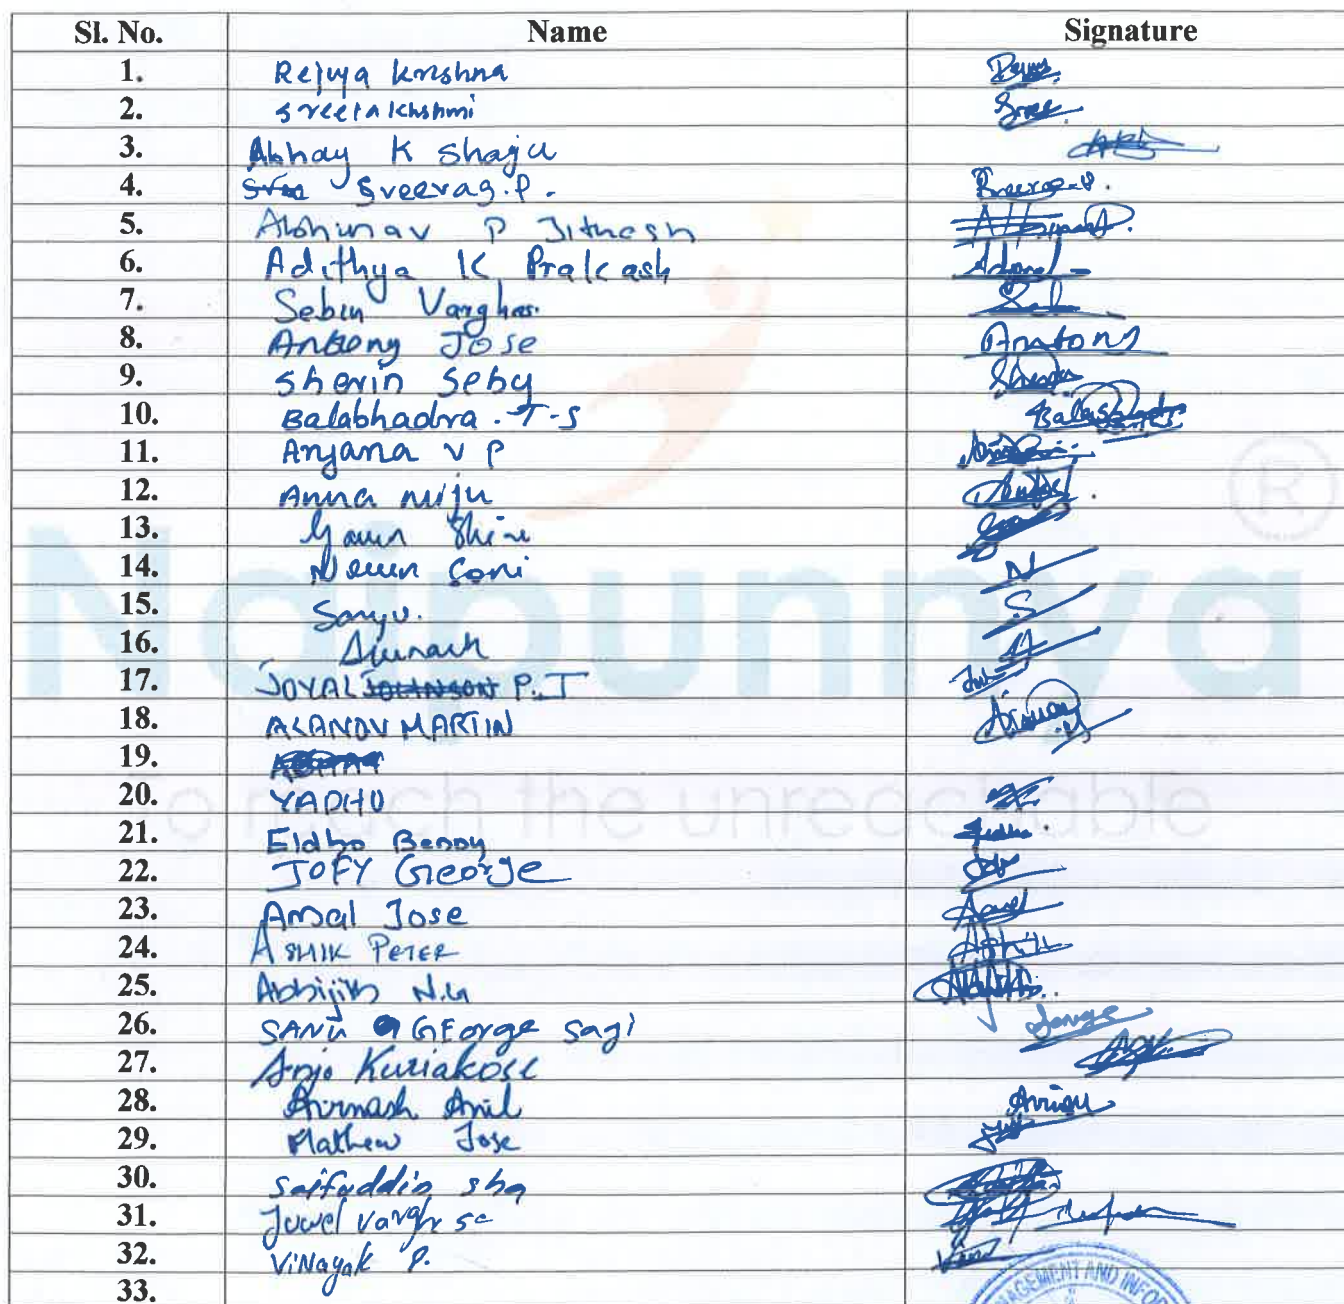 Sl. No. Name Signature
1. Rejuya Krishna
2. Sreelakhshmi Sree
3. Abhay K Shaju
4. Sreerag.P.
5. Abhinav P Jithesh
6. Adithya K Prakash
7. Sebin Varghes.
8. Antony Jose Anatony
9. Sherin Seby
10. Balabhadra.T-S
11. Anjana V P
12. Anna miju
13. Shine
14. Soni N
15. Sanju. S
16. A
17. JOYAL JOHNSON P.T
18. MARTIN
19.
20. YADHU
21. Eldho Benny
22. JOFY George
23. Amal Jose
24. ASHIK PETER
25. Abhijith N.G
26. SANU GEorge Sagi
27. Anjo Kuriakose
28. Avinash Anil
29. Mathew Jose
30. Saifuddin sha
31. Juwel varghese
32. ViNayak P.
33.
Naipunnya ®
To reach the unreachable
MANAGEMENT AND